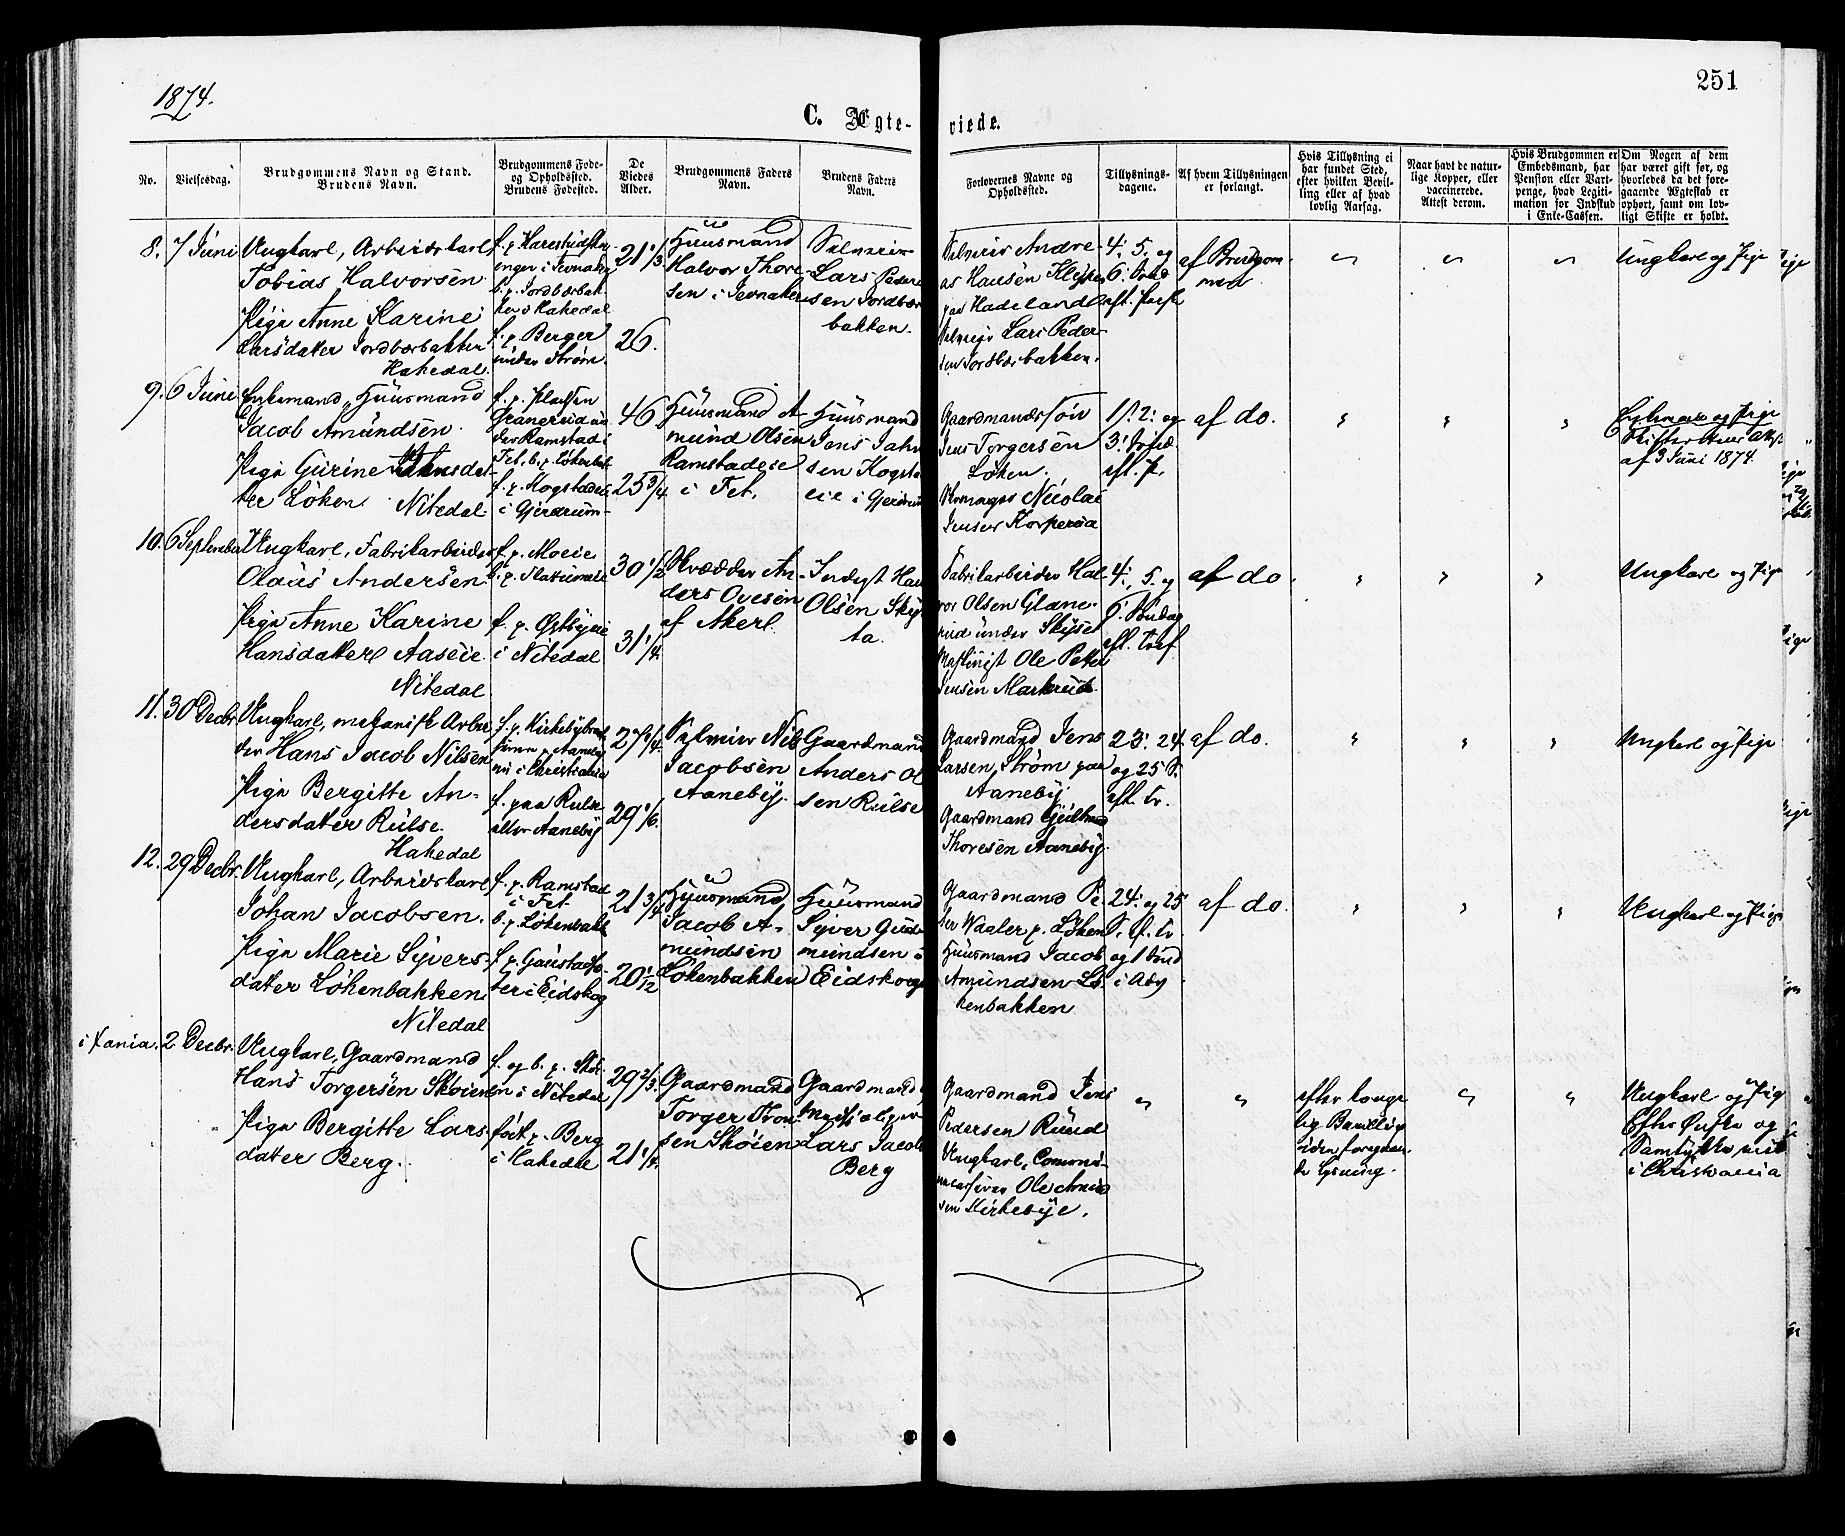 1874.
251
C. Ægte-
viede.
No.
Vielsesdag.
Brudgommens Navn og Stand.
Brudens Navn.
Brudgommens Føde-
og Opholdssted.
Brudens Fødested.
De
Viedes
Alder.
Brudgommens Faders
Navn.
Brudens Faders
Navn.
Forlovernes Navne og
Opholdssted.
Tillysnings-
dagene.
Af hvem Tillysningen
er forlangt.
Hvis Tillysning ei
har fundet Sted,
efter hvilken Bevil-
ling eller af hvad
lovlig Aarsag.
Naar havt de natur-
lige Kopper, eller
vaccinerede.
Attest derom.
Hvis Brudgommen er
Embedsmand, har
Pension eller Vart-
penge, hvad Legiti-
mation for Indskud
i Enke-Cassen.
Om Nogen af dem
har været gift før, og
hvorledes da det fore-
gaaende Ægteskab er
ophørt, samt om lov-
ligt Skifte er holdt.
8. 7 Juni
Ungkarl, Arbeidskarl
Tobias Halvorsen
Pige Anne Karine
Larsdatter Jordbærbakken
Hakedal.
i Jevnaker
b. p. Jordbærbak
ken i Hakedal
f. p. Berger
under Strøm.
21 1/3
26.
Huusmand
Halvor Thore-
sen i Jevnaker
Lars Peder
sen Jordbær
bakken.
Andre-
as Hansen
paa Hadeland
Lars Peder-
sen Jordbærbakken.
4., 5. og
6. Sønd
eft. Paask
af Brudgom
men
Ungkarl og Pige
9. 6 Juni
Enkemand, Huusmand
Jacob Amundsen.
Pige Gurine Jahnsdat-
ter Løken. Nitedal
f. p. Pladsen
Granerud un
der Ramstad i
Fet, b. p. Løkenbak
f. p. Kogstadeie
i Gjerdrum
46
25 3/4
Huusmand A
mund Olsen
Ramstadeie
i Fet.
Huusmand
Jens Jahn
sen Kogstad
eie i Gjerdrum
Gaardmandssøn
Jens Torgersen
Løken.
Nicolai
Jensen
1. 2. og
3. Sønd.
eft. P.
af do.
Enkemand og Pige
Skifterettens Attest
af 3 Juni 1874.
10. 6 September
Ungkarl, Fabrikarbeider
Olaus Andersen
Pige Anne Karine
Hansdatter Aaseie.
Nitedal.
f. p. Moeie
b. p. Slatumeie
f. p. Østbyeie
i Nitedal
30 1/2
31 1/4.
Skrædder An-
ders Ovesen
af Aker.
Inderst Hans
Olsen Skyt
ta.
Fabrikarbeider Hal
vor Olsen Glane-
rud under Skyset
Ole Peter
Jensen Markerud.
4., 5. og
6. Søndag
eft. Tref
af do.
Ungkarl og Pige
11. 30 Decbr.
Ungkarl, mekanisk Arbei
der Hans Jacob Nilsen
Pige Bergitte An-
dersdatter Rulse.
Hakedal
f. p. Kirkebybraat
nu i Christiania
f. paa Rulse
eller Aaneby
27 1/4.
29 1/6.
Nils
Jacobsen
Aaneby.
Gaardmand
Anders Ol
sen Rulse
Gaardmand Jens
Larsen Strøm paa
Aaneby.
Gaardmand Gulbrand
Thoresen Aaneby.
23. 24.
og 25 S.
eft. Tr.
af do.
Ungkarl og Pige
12. 29 Decbr.
Ungkarl, Arbeidskarl
Johan Jacobsen.
Pige Marie Syvers-
datter Løkenbakken
Nitedal
f. p. Ramstad
i Fet.
b. p. Løkenbakk
f. p. Gaustadsæ-
ter i Eidskog
21 3/4
20 1/12
Huusmand
Jacob A-
mundsen
Løkenbakken
Huusmand
Syver Gud-
mundsen i
Eidskog
Gaardmand Pe-
der Waaler p. Løken
Huusmand Jacob
Amundsen Lø-
kenbakken
24. og 25
S. e. Tr.
og 1 Sønd
i Adv
af do.
Ungkarl og Pige
i Xania. 2 Decbr.
Ungkarl, Gaardmand
Hans Torgersen Skøien
Pige Bergitte Lars-
datter Berg.
f. og b. p. Skøi-
en i Nitedal
født p. Berg
i Hakedal
29 2/3.
21 1/4.
Gaardmand
Torger Tron-
sen Skøien
Gaardmand
Lars Jacob
Berg
Gaardmand Jens
Pedersen Ruud
Ungkarl,
Ole Amund
sen Kirkebye.
efter konge-
lig Bevilling
uden foregaaen-
de Lysning.
Ungkarl og Pige
Efter Ønske og
Samtykke viet
i Christiania